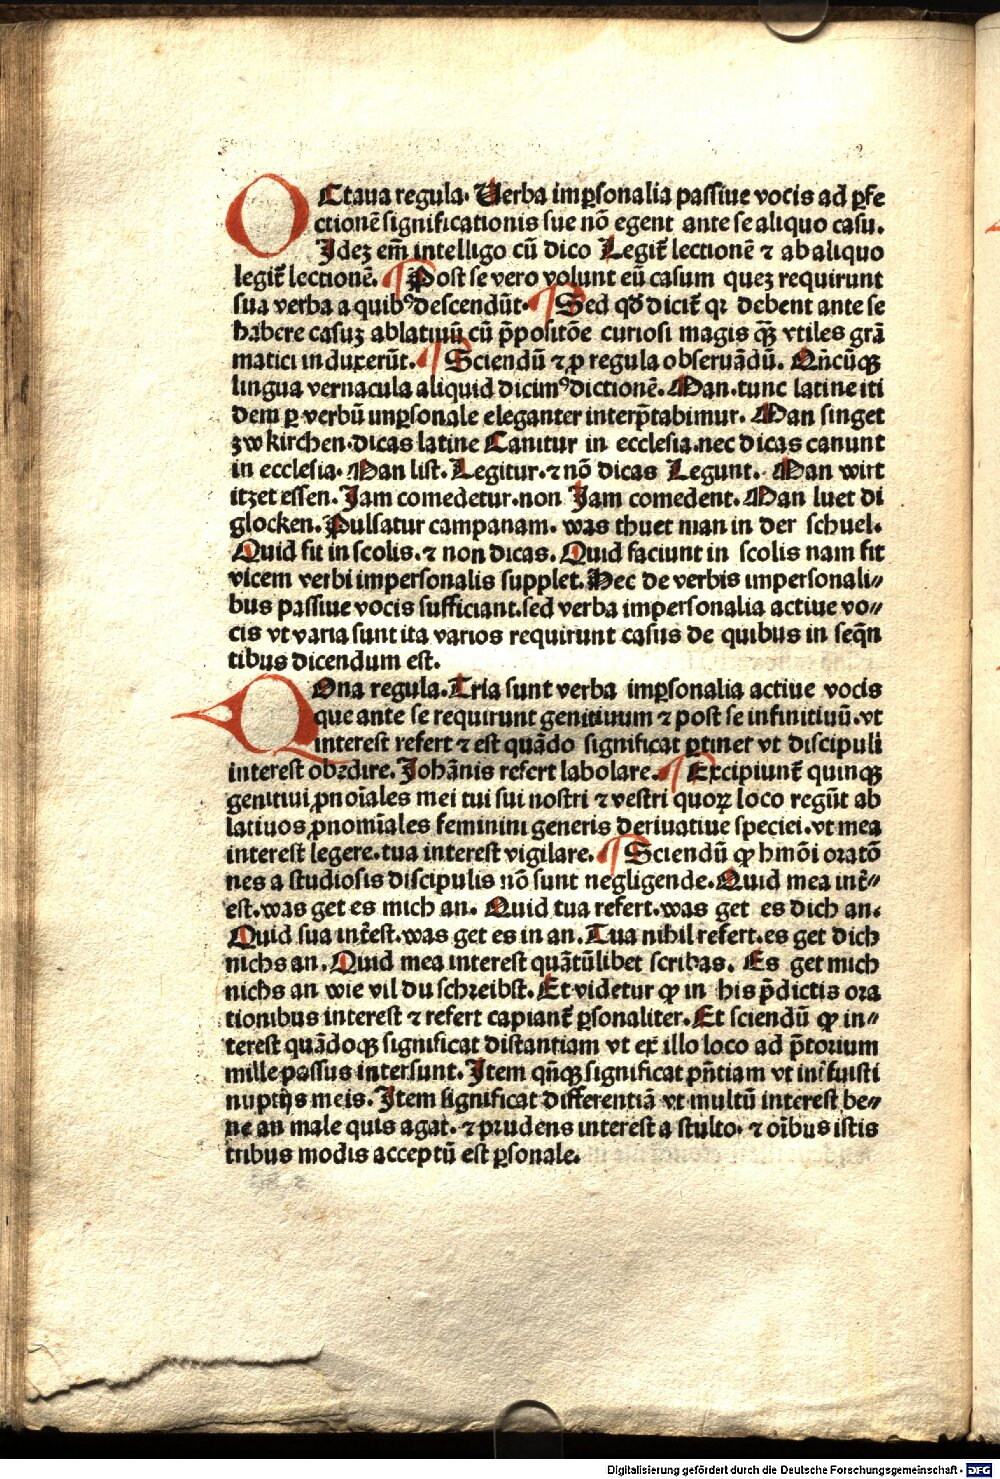 OCtaua regula. Verba imꝑsonalia passiue vocis ad ꝑfe
ctionē significationis sue nō egent ante se aliquo casu.
Idez em̄ intelligo cū dico Legit᷑ lectionē ⁊ ab aliquo
legit᷑ lectionē. Post se vero volunt eū casum quez requirunt
sua verba a quibꝰ descendūt. Sed qd̄ dicit᷑ qꝛ debent ante se
habere casuz ablatiuū cū p̄positōe curiosi magis qꝫ̄ vtiles grā
matici induxerūt. Sciendū ⁊ ꝓ regula obseruādū. Qn̄cūqꝫ
lingua vernacula aliquid dicimꝰ dictionē. Man. tunc latine iti
dem ꝑ verbū unꝑsonale eleganter interp̄tabimur. Man singet
zw kirchen. dicas latine Canitur in ecclesia. nec dicas canunt
in ecclesia. Man list. Legitur. ⁊ nō dicas Legunt. Man wirt
itzet essen. Jam comedetur. non Jam comedent. Man luet di
glocken. Pulsatur campanam. was thuet man in der schuel.
Quid fit in scolis. ⁊ non dicas. Quid faciunt in scolis nam fit
vicem verbi impersonalis supplet. Hec de verbis impersonali⸗
bus passiue vocis sufficiant. sed verba impersonalia actiue vo⸗
cis vt varia sunt ita varios requirunt casus de quibus in seq̄n
tibus dicendum est.
NOna regula. Tria sunt verba imꝑsonalia actiue vocis
que ante se requirunt genitiuum ⁊ post se infinitiuū. vt
interest refert ⁊ est quādo significat ꝑtinet vt discipuli
interest obedire. Johānis refert labolare. Excipiunt᷑ quinqꝫ
genitiui ꝓnoīales mei tui sui nostri ⁊ vestri quoꝝ loco regūt ab
latiuos ꝓnomīales feminini generis deriuatiue speciei. vt mea
interest legere. tua interest vigilare. Sciendū ꝙ hmōi oratō
nes a studiosis discipulis nō sunt negligende. Quid mea int̄⸗
est. was get es mich an. Quid tua refert. was get es dich an.
Quid sua int̄est. was get es in an. Tua nihil refert. es get dich
nichs an. Quid mea interest quātūlibet scribas. Es get mich
nichs an wie vil du schreibst. Et videtur ꝙ in his p̄dictis ora
tionibus interest ⁊ refert capiant᷑ ꝑsonaliter. Et sciendū ꝙ in⸗
terest quādoqꝫ significat distantiam vt ex illo loco ad p̄torium
mille passus intersunt. Item qn̄qꝫ significat pn̄tiam vt int̄fuisti
nuptijs meis. Item significat differentiā vt multū interest be⸗
ne an male quis agat. ⁊ prudens interest a stulto. ⁊ oībus istis
tribus modis acceptū est ꝑsonale.
Digitalisierung gefördert durch die Deutsche Forschungsgemeinschaft - DFG